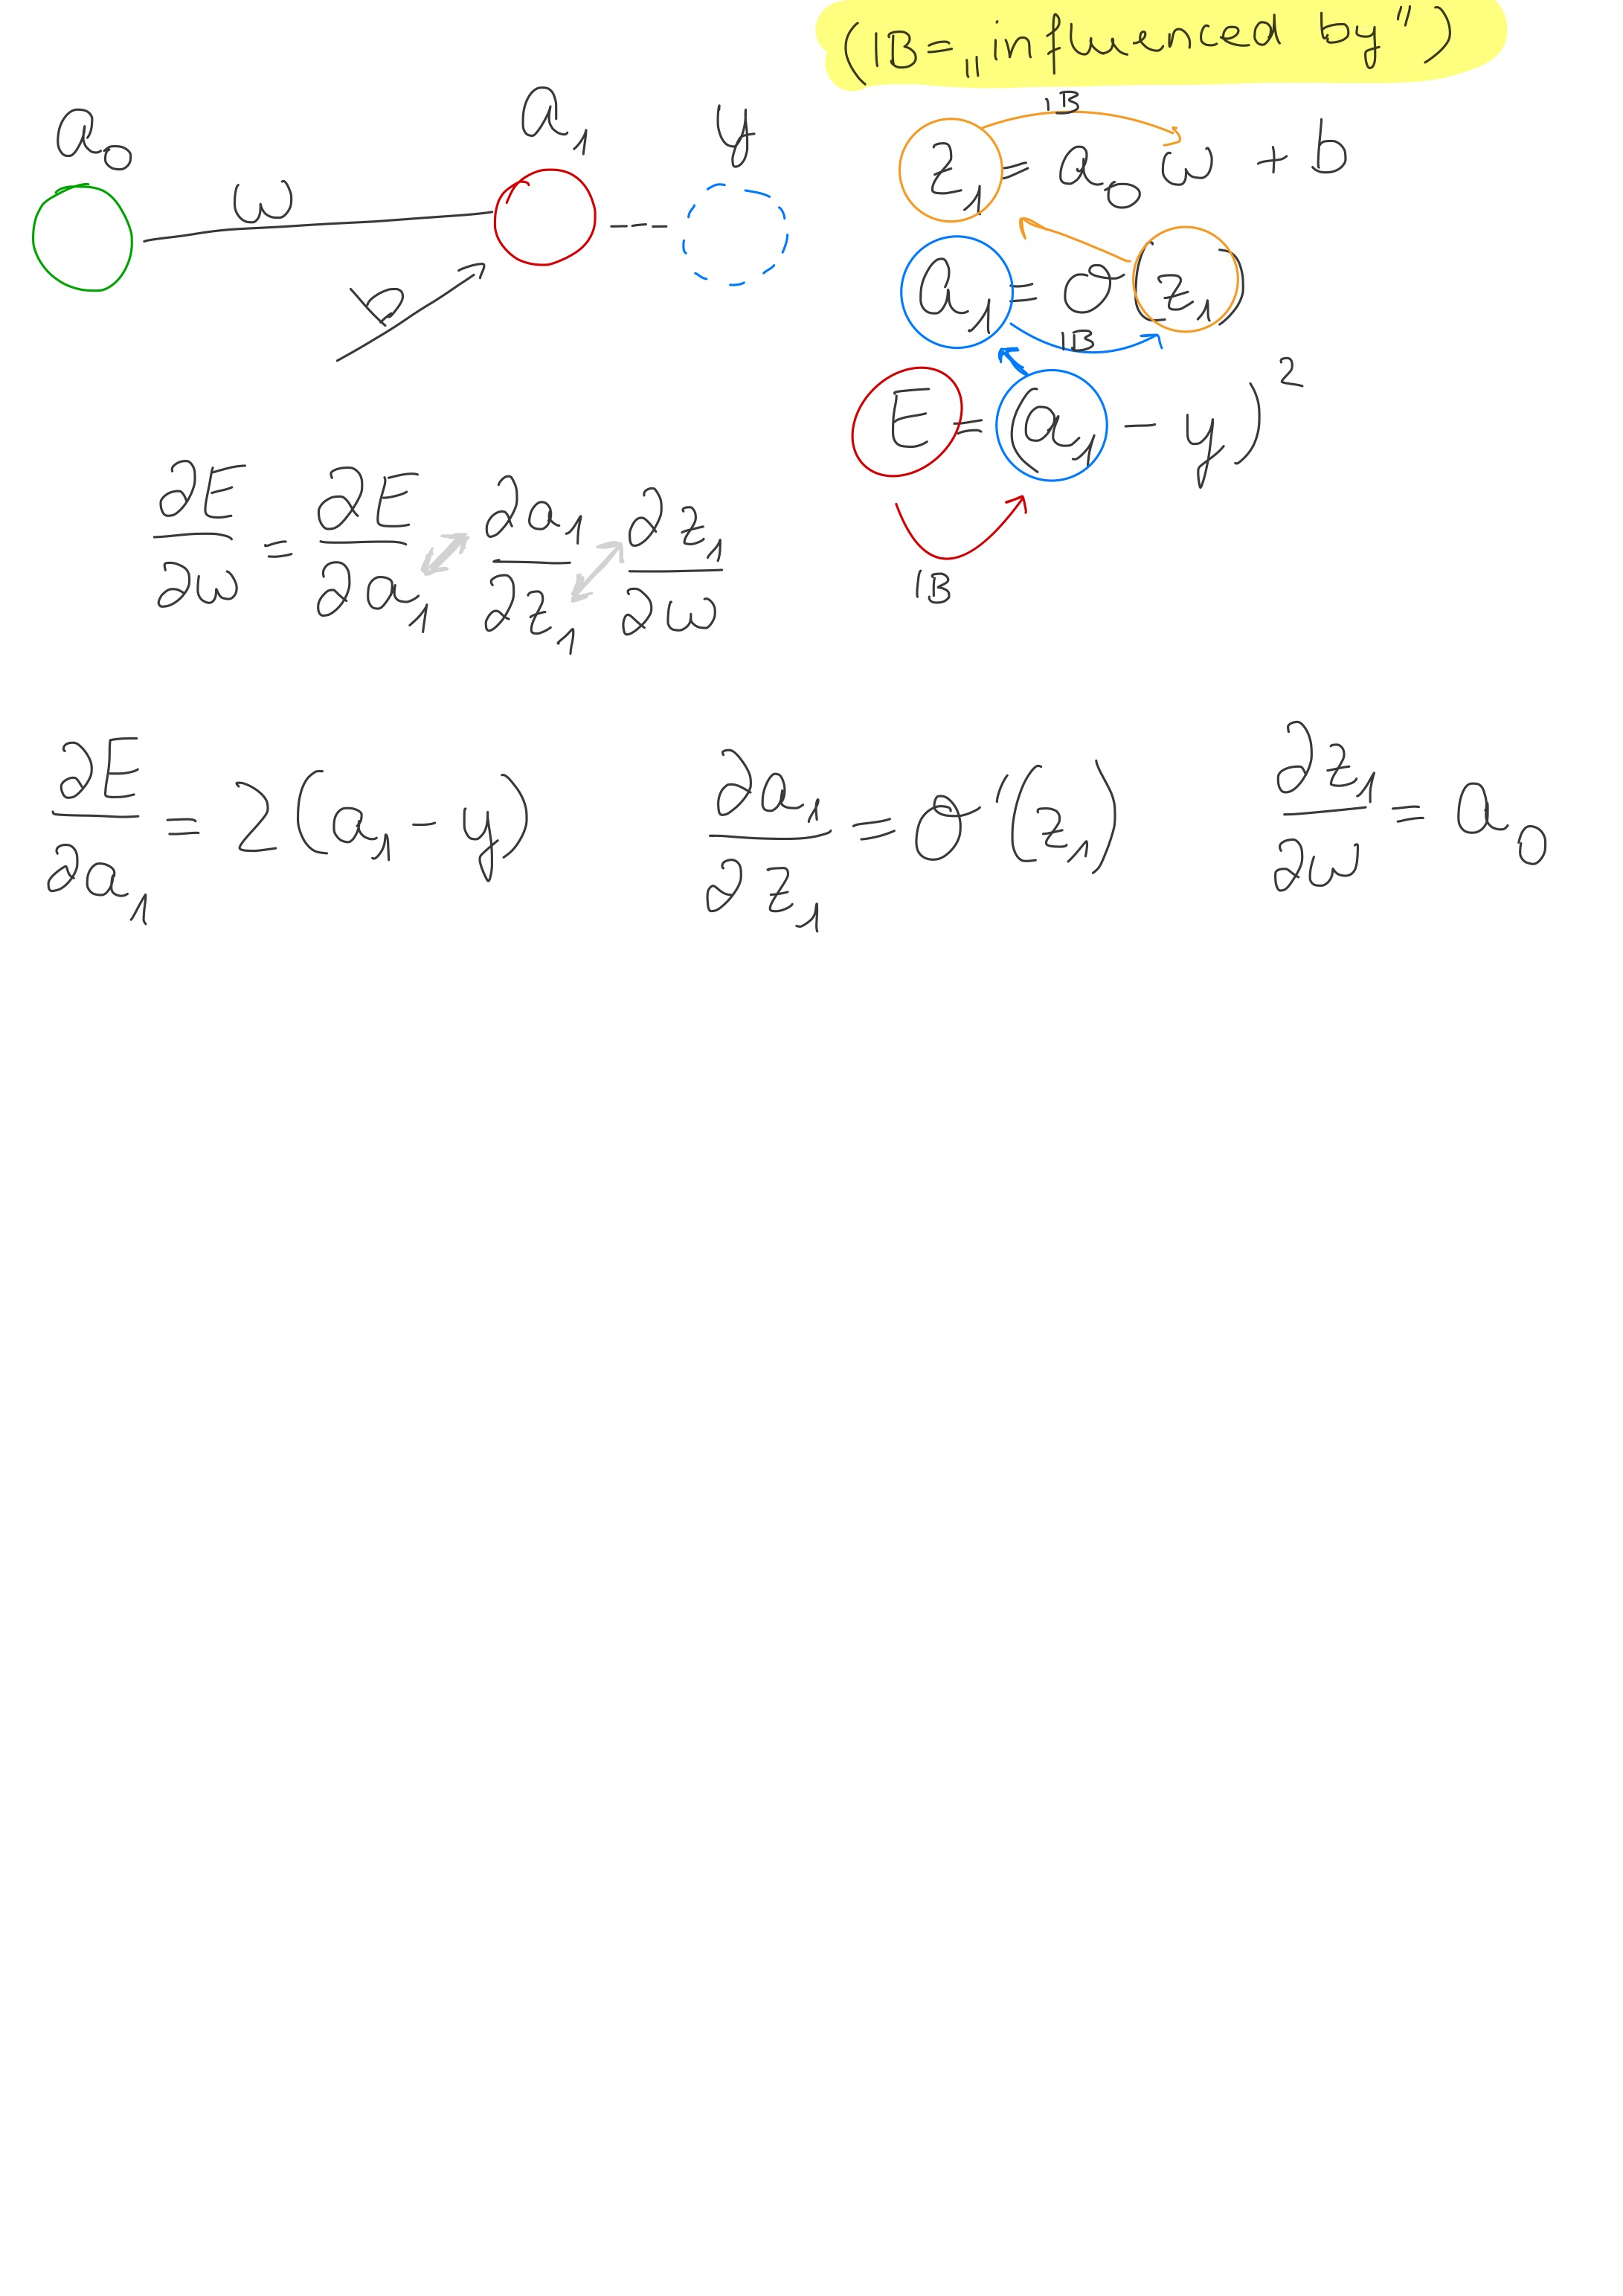 (IB = „influenced by")
a₀ w a₁ y
b
IB
z₁ = a₀ w + b
a₁ = σ(z₁)
IB
E = (a₁ - y)²
IB
∂E/∂w = ∂E/∂a₁ ∂a₁/∂z₁ ∂z₁/∂w
∂E/∂a₁ = 2(a₁ - y) ∂a₁/∂z₁ = σ'(z₁) ∂z₁/∂w = a₀